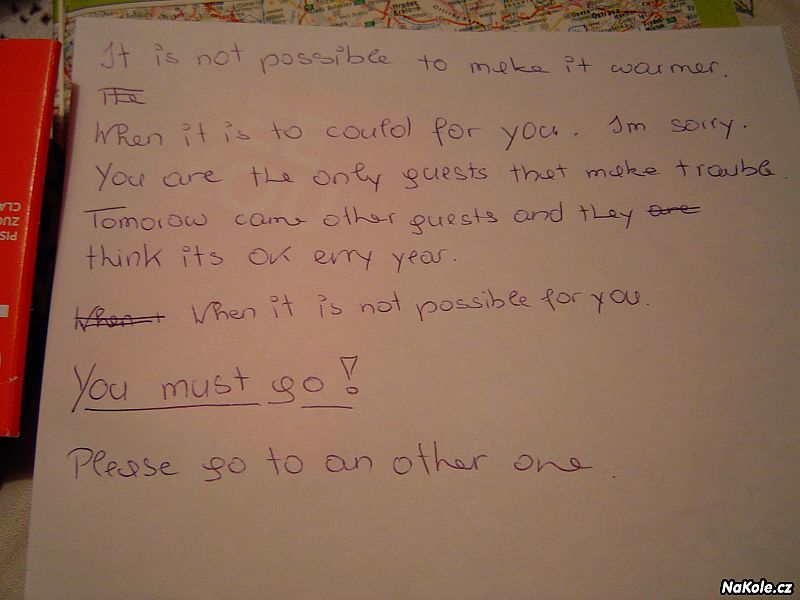 It is not possible to make it warmer.
When it is to could for you. Im sorry.
You are the only guests that make trouble.
Tomorow came other guests and they are
think its OK erry year.
When it is not possible for you.
You must go!
Please go to an other one.
PIS
ZUG
CLA
Hradec
Králové
Ostrava
NaKole.cz